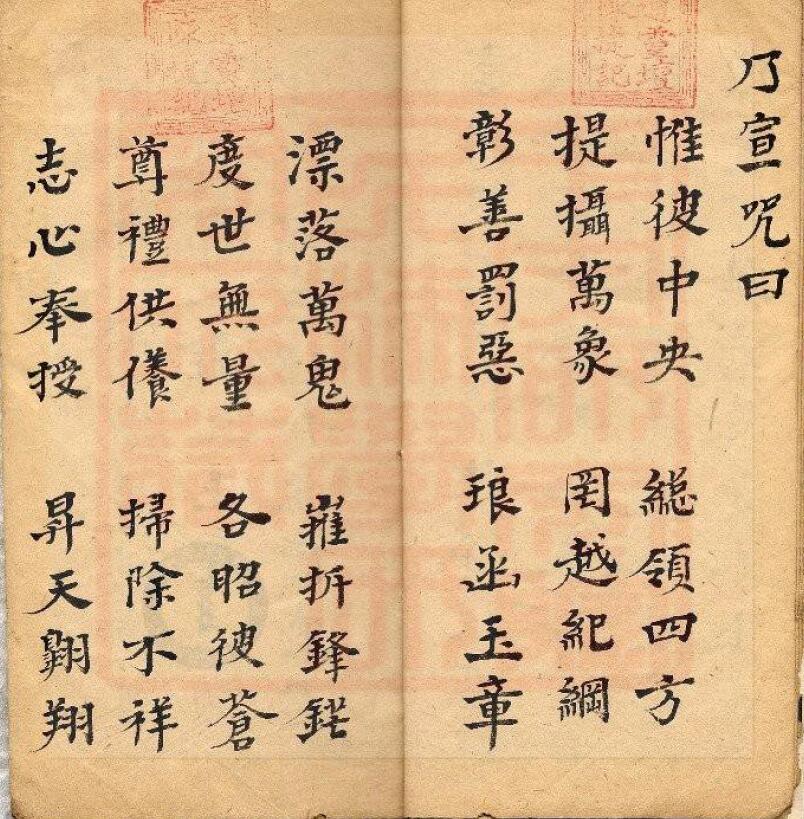 乃宣咒曰
惟彼中央 総領四方
提攝萬象 罔越紀綱
彰善罰惡 琅函玉章
漂落萬鬼 摧折鋒鋩
度世無量 各昭彼蒼
尊禮供養 掃除不祥
志心奉授 昇天翺翔